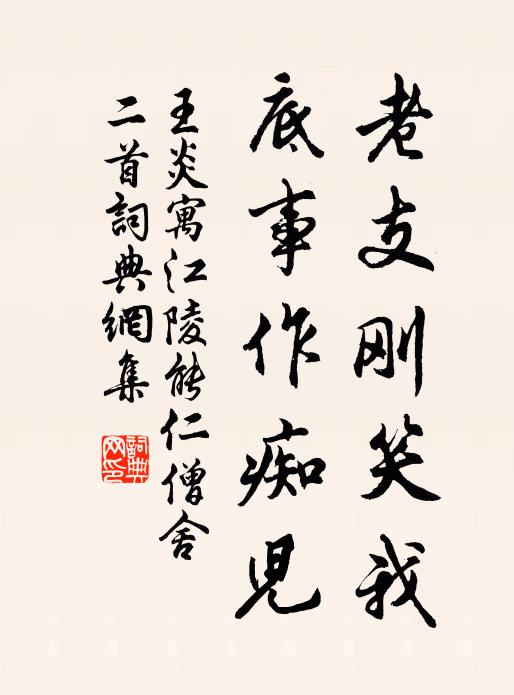 老支刚笑我
底事作痴児
王炎寓江陵能仁僧舍
二首詞典網集
詞典网印